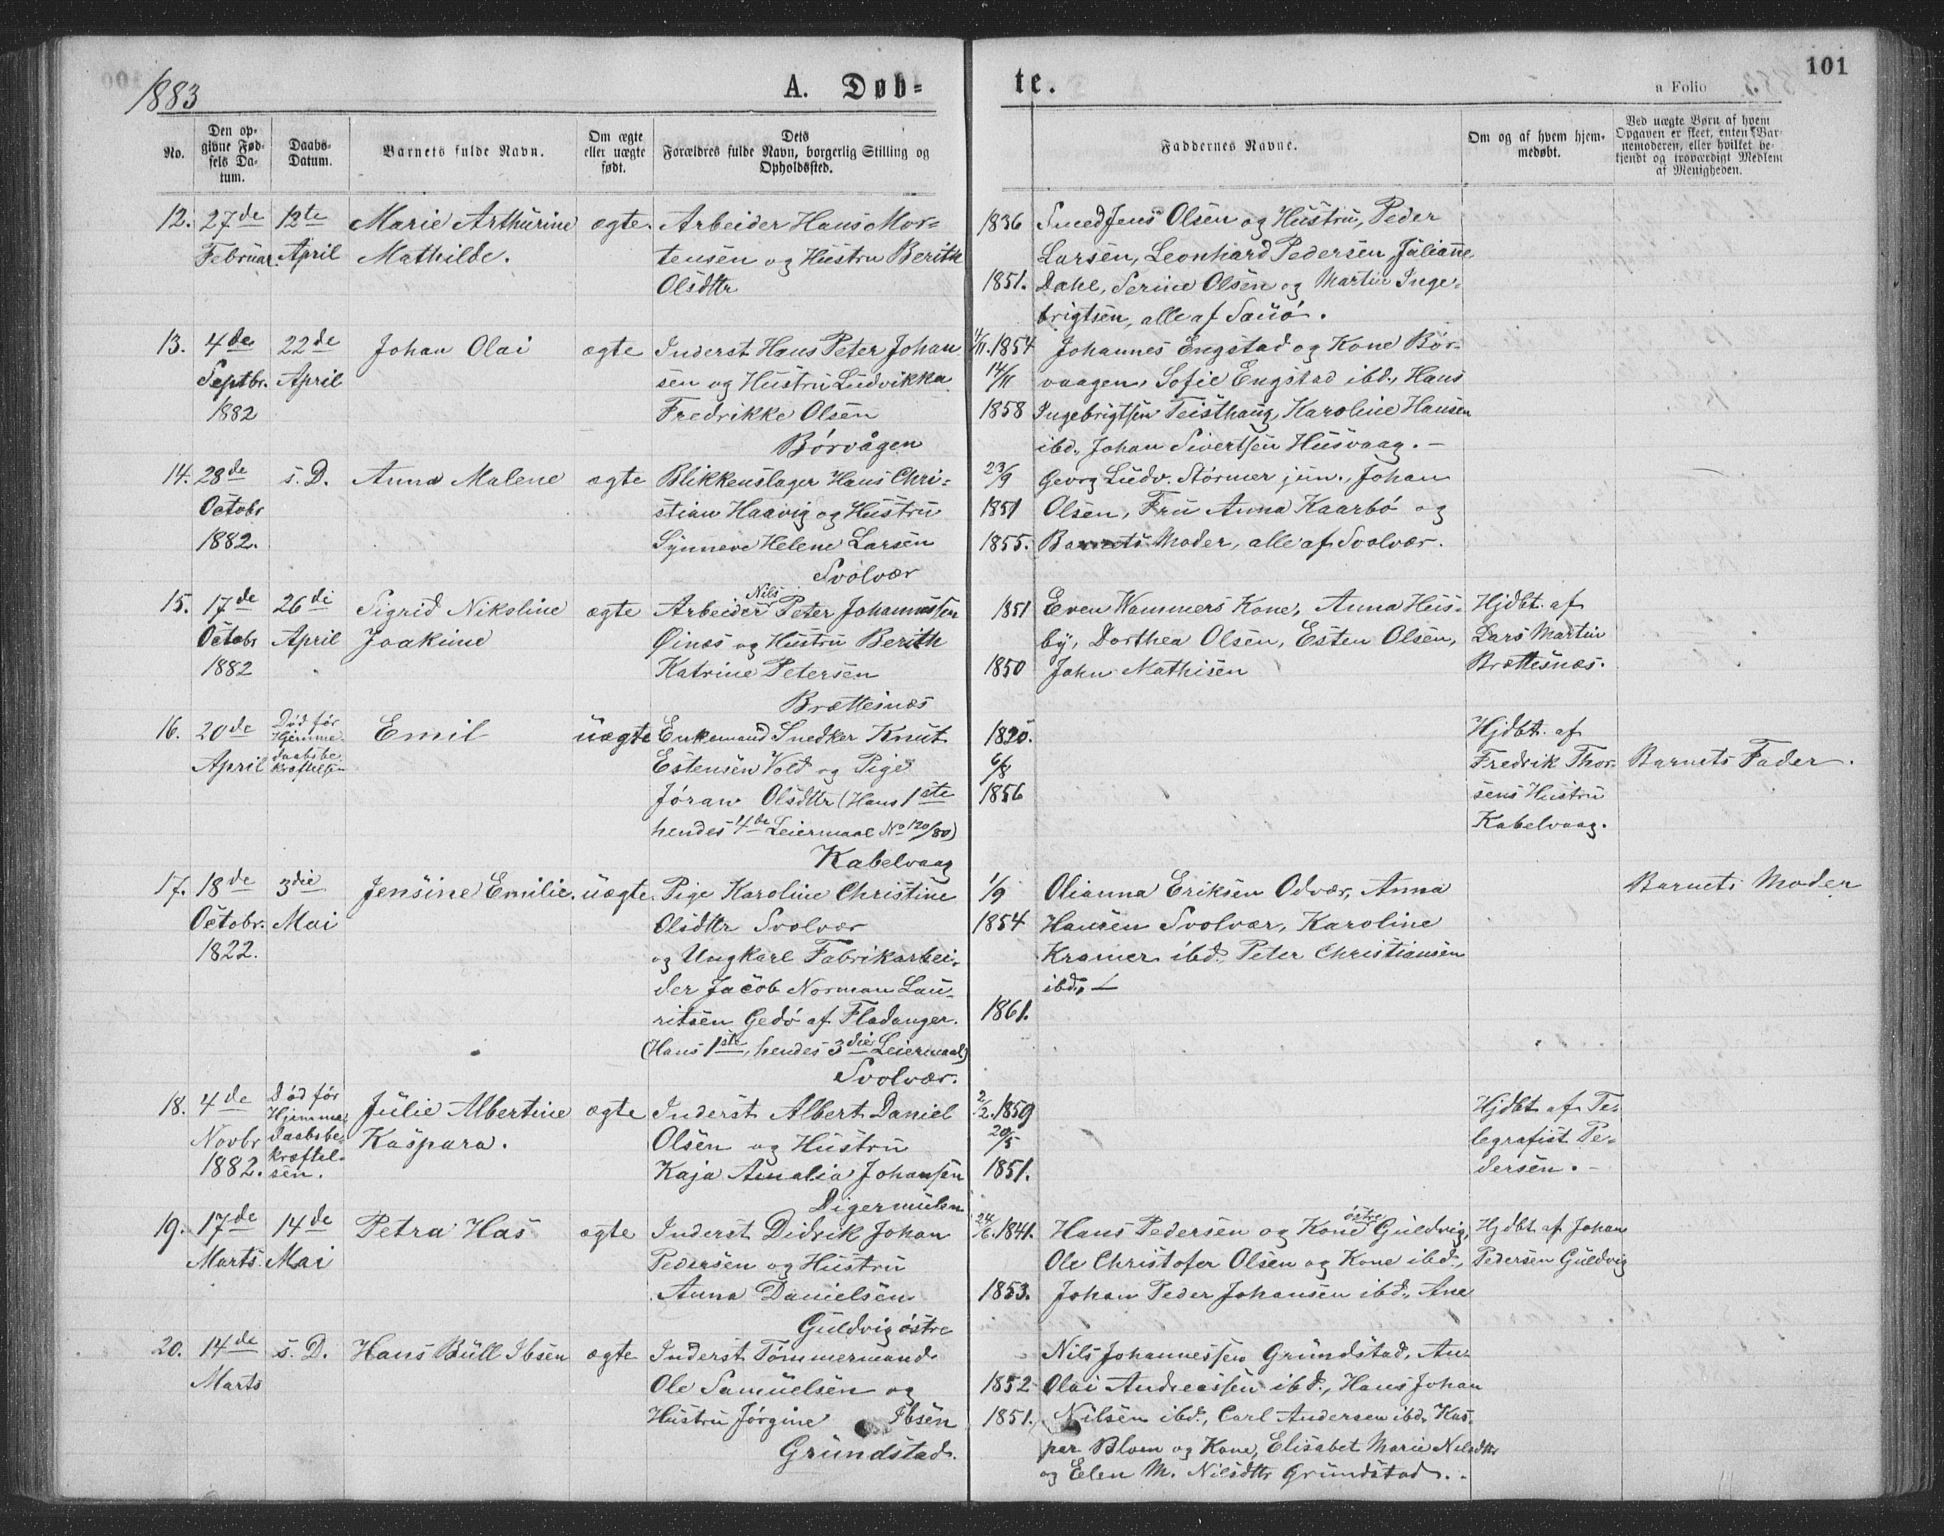 1883
A. Døb-
te.
a Folio
101
No.
Den op-
givne Fød-
sels Da-
tum.
Daabs-
Datum.
Barnets fulde Navn.
Om ægte
eller uægte
født.
Dets
Forældres fulde Navn, borgerlig Stilling og
Opholdssted.
Faddernes Navne.
Om og af hvem hjem-
medøbt.
Ved uægte Børn af hvem
Opgaven er skeet, enten Bar-
nemoderen, eller hvilket be-
kjendt og troværdigt Medlem
af Menigheden.
12. 27de 12te Marie Arthurine ægte. Arbeider Hans Mor- 1836 Smed Jens Olsen og Hustru, Peder
Februar. April Mathilde. tensen og Hustru Berith Larsen, Leonhard Pedersen, Julianne
Olsdttr 1851. Dahl, Serine Olsen og Martin Inge-
brigtsen, alle af Sauø.
13. 4de 22de Johan Olai ægte Inderst Hans Peter Johan 1/11.1854 Johannes Engstad og Kone Bør-
Septbr. April sen og Hustru Ludvikka 14/11 vaagen, Sofie Engstad ibd., Hans
1882 Fredrikke Olsen 1858 Ingebrigtsen Teisthaug, Karoline Hansen
Børvågen ibd., Johan Sivertsen Husvaag. –
14. 28de s. D. Anna Malene ægte Blikkenslager Hans Chri- 23/9 Georg Ludv. Størmer jun., Johan
Octobr stian Haavig og Hustru 1851 Olsen, Fru Anna Kaarbø og
1882. Synneve Helene Larsen 1855. Barnets Moder, alle af Svolvær.
Svolvær
15. 17de 26de Sigrid Nikoline ægte Arbeider Nils Peter Johannessen 1851 Even Wammers Kone, Anna Hus- Hjdbt. af
Octobr April Joakime Øines og Hustru Berith by, Dorthea Olsen, Esten Olsen, Lars Martin
1882 Katrine Petersen 1850 John Mathisen Brettesnæs.
Brettesnæs
16. 20de Død før Emil uægte Enkemand Snedker Knut 1820. Hjdbt. af
April Hjemme- Estensen Vold og Pige 6/8 Fredrik Thor- Barnets Fader.
daabsbe- Jøran Olsdttr (Hans 1ste 1856 sens Hustru
kræftelsen hendes 4de Leiermaal No 120/80) Kabelvaag.
Kabelvaag
17. 18de 3die Jensine Emilie. uægte. Pige Karoline Christine 1/9 Olianna Eriksen Odvær, Anna Barnets Moder
Octobr. Mai Olsdttr Svolvær 1854 Hansen Svolvær, Karoline
1822. og Ungkarl Fabrikarbei- Kramer ibd., Peter Christiansen
der Jacob Norman Lau- ibd., –
ritsen Gedø af Fladanger. 1861.
(Hans 1ste, hendes 3die Leiermaal)
Svolvær.
18. 4de Død før Julie Albertine ægte Inderst Albert Daniel 2/2.1859 Hjdbt af Te-
Novbr Hjemme- Kaspara. Olsen og Hustru 20/5 legrafist Pe-
1882. daabsbe- Kaja Amalia Johansen 1851. dersen. –
kræftel-
sen. Digermulen
19. 17de 14de Petra Has ægte Inderst Didrik Johan 24/6.1841. Hans Pedersen og Kone østre Guldvig, Hjdbt af Johan
Marts. Mai Pedersen og Hustru Ole Christofer Olsen og Kone ibd., Pedersen Guldvig
Anna Danielsen 1853. Johan Peder Johansen ibd., Ane
Guldvig østre
20. 14de s. D. Hans Büll Ibsen ægte Inderst Tømmermand Nils Johannessen Grundstad, An-
Marts Ole Samuelsen og 1852 Olai Andreassen ibd., Hans Johan
Hustru Jørgine Ibsen 1851. Nilsen ibd., Carl Andersen ibd., Kas-
Grundstad. per Blom og Kone, Elisabet Marie Nilsdttr
og Elen M. Nilsdttr Grundstad. –